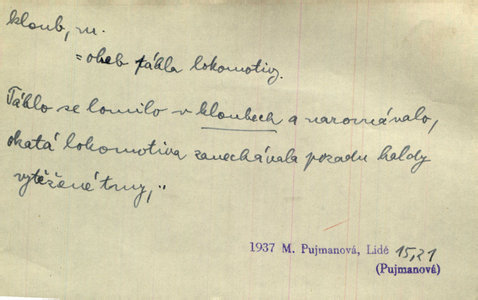 kloub, m.
= oheb táhla lokomotivy.
Táhlo se lomilo v kloubech a narovnávalo,
okatá lokomotiva zanechávala pozadu haldy
vytěžené tmy,"
1937 M. Pujmanová, Lidé 15,21
(Pujmanová)